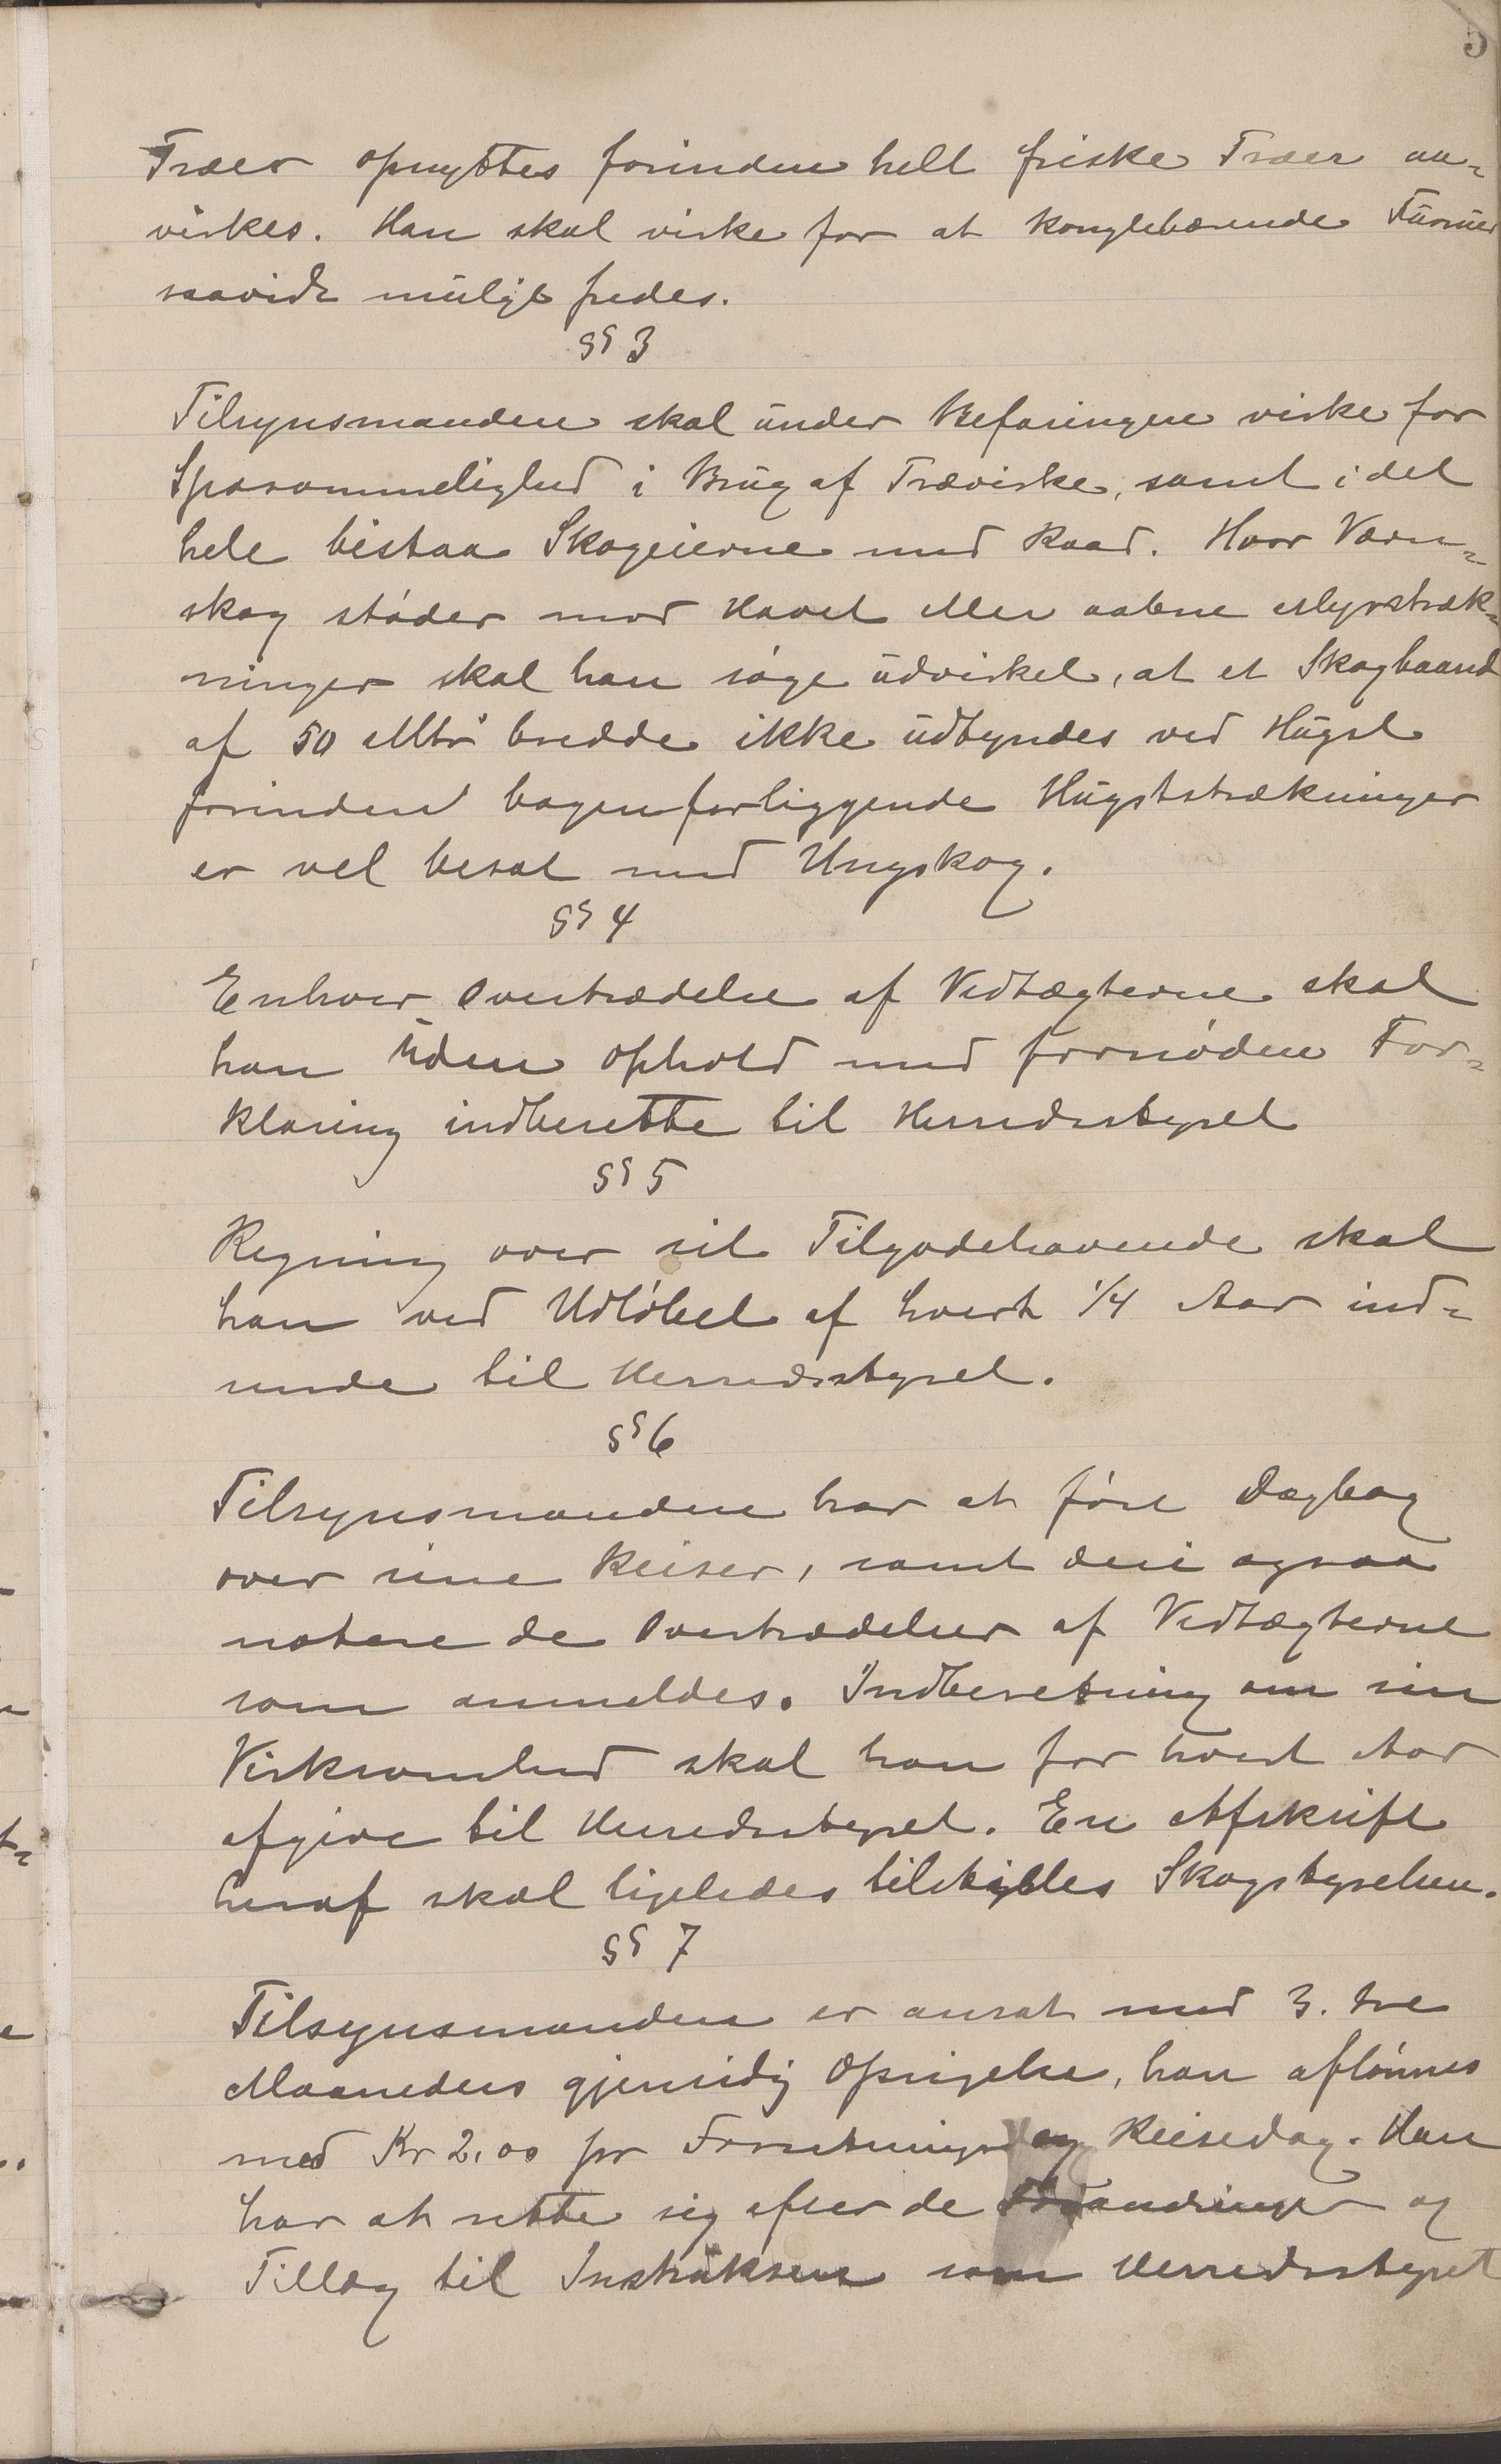 5
Træer opnyttes forinden hell friske Træer aa-
virkes. Han skal virke for at konglebærende Furuer
saavidt muligt fredes.
§§ 3
Tilsynsmanden skal under Befaringen virke for
Sparsommelighed i Brug af Trævirke, samt i det
hele bistaa Skogeierne med Raad. Hvor Værn-
skog støder mod Havet eller aabne Myrstræk-
ninger skal han søge udvirket, at et Skogbaand
af 50 Mtr's bredde ikke udtyndes ved Hugst
forinden bagenforliggende Hugststrækninger
er vel besat med Ungskog.
§§ 4
Enhver Overtrædelse af Vedtægterne skal
han uden Ophold med fornøden For-
klaring indberette til Herredsstyret
§§ 5
Regning over sit Tilgodehavende skal
han ved Udløbet af hvert 1/4 Aar ind-
sende til Herredsstyret.
§§ 6
Tilsynsmanden har at føre Dagbog
over sine Reiser, samt deri ogsaa
notere de Overtrædelser af Vedtægterne
som anmeldes. Indberetning om sin
Virksomhed skal han for hvert Aar
afgive til Herredsstyret. En Afskrift
heraf skal ligeledes tilstilles Skogstyrelsen.
§§ 7
Tilsynsmanden er ansat med 3. tre
Maaneders gjensidig Opsigelse, han aflønnes
med Kr 2,00 pr Forretnings og Reisedag. Han
har at rette sig efter de Forandringer og
Tillæg til Instruksen som Herredsstyret